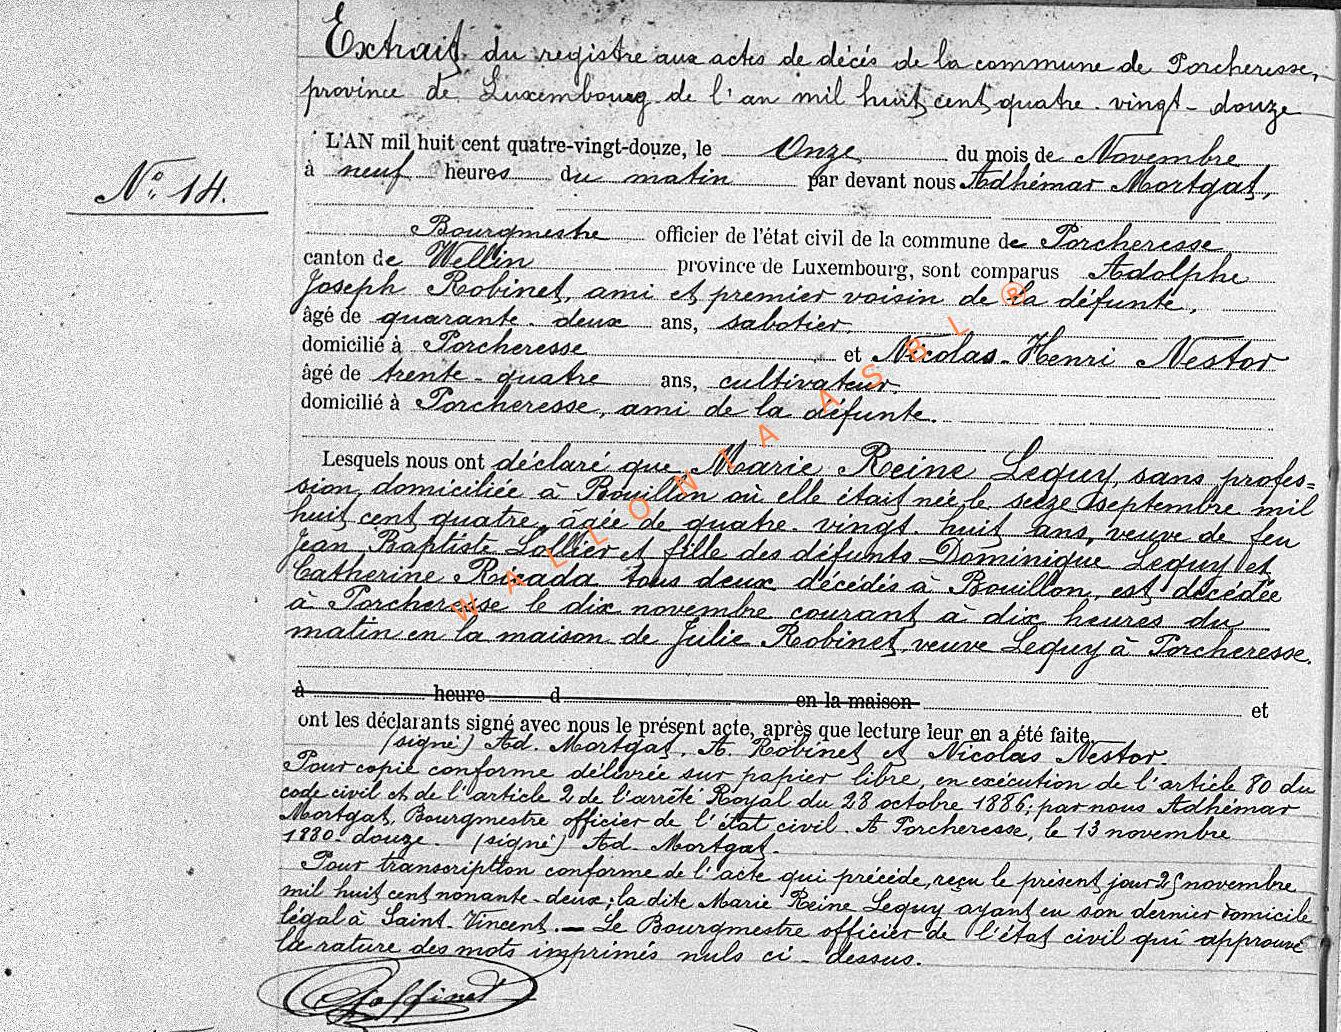 Extrait du registre aux actes de décès de la commune de Porcheresse,
province de Luxembourg de l'an mil huit cent quatre-vingt-douze
L'AN mil huit cent quatre-vingt-douze, le Onze du mois de Novembre
N° 14.
à neuf heures du matin par devant nous Adhémar Mortgat,
Bourgmestre officier de l'état civil de la commune de Porcheresse
canton de Wellin province de Luxembourg, sont comparus Adolphe
Joseph Robinet, ami et premier voisin de la défunte,
âgé de quarante-deux ans, sabotier,
domicilié à Porcheresse et Nicolas-Henri Nestor
âgé de trente-quatre ans, cultivateur,
domicilié à Porcheresse, ami de la défunte.
Lesquels nous ont déclaré que Marie Reine Lequy, sans profes=
sion, domiciliée à Bouillon où elle était née le seize septembre mil
huit cent quatre, âgée de quatre-vingt-huit ans, veuve de feu
Jean Baptiste Lollier et fille des défunts Dominique Lequy et
Catherine Ricada tous deux décédés à Bouillon, est décédée
à Porcheresse le dix novembre courant à dix heures du
matin en la maison de Julie Robinet, veuve Lequy à Porcheresse.
à heure d en la maison et
ont les déclarants signé avec nous le présent acte, après que lecture leur en a été faite.
(signé) Ad. Mortgat, A. Robinet et Nicolas Nestor.
Pour copie conforme délivrée sur papier libre, en exécution de l'article 80 du
code civil et de l'article 2 de l'arrêté Royal du 28 octobre 1886; par nous Adhémar
Mortgat, Bourgmestre officier de l'état civil. A Porcheresse, le 13 novembre
1880-douze. (signé) Ad. Mortgat.
Pour transcription conforme de l'acte qui précède, reçu le présent jour 25 novembre
mil huit cent nonante-deux; la dite Marie Reine Lequy ayant eu son dernier domicile
légal à Saint-Vincent. — Le Bourgmestre officier de l'état civil qui approuve
la rature des mots imprimés nuls ci-dessus.
Goffinet
WALLONIA ASBL ®